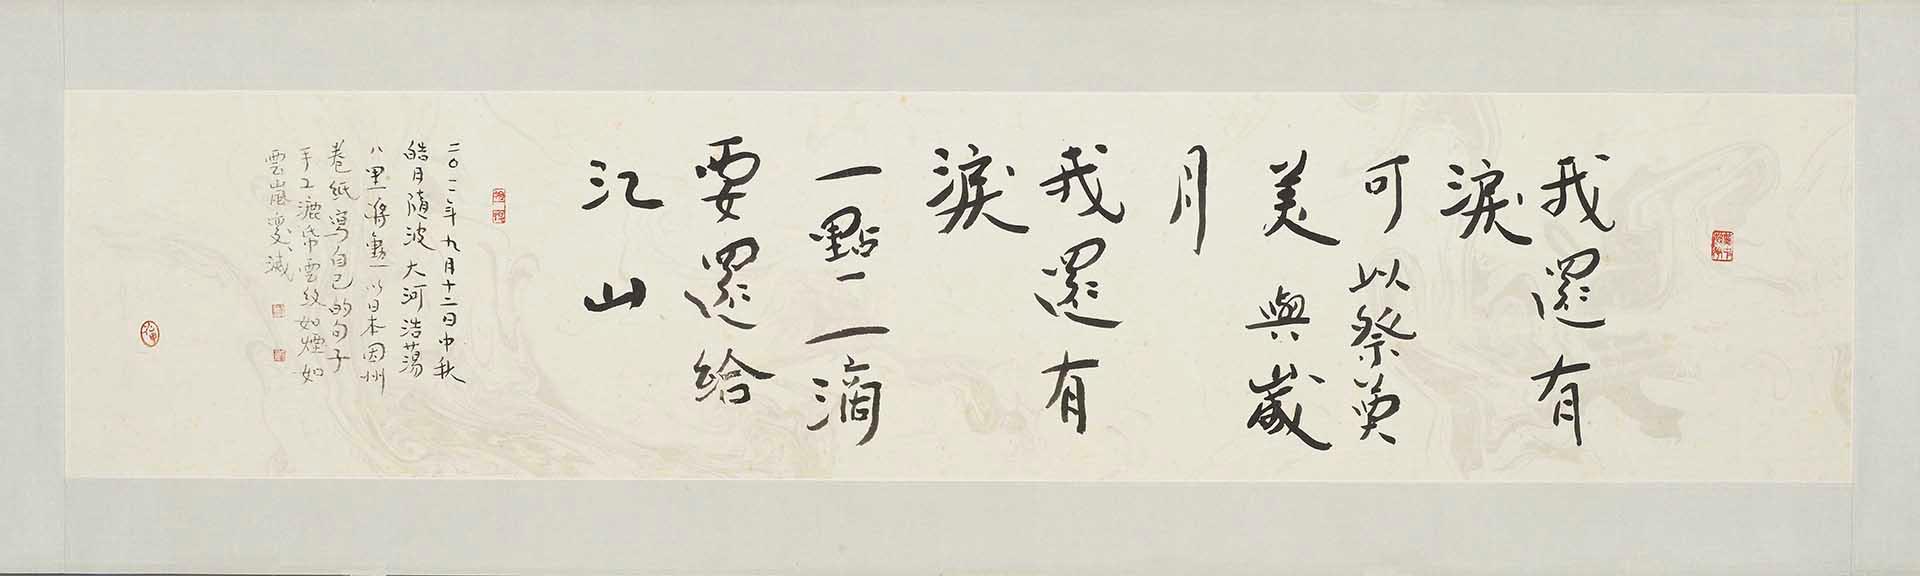 我還有
淚
可以祭奠
美與歲
月
我還有
淚
一點一滴
要還給
江山
二〇二二年九月十二日中秋
皓月隨波大河浩蕩
八里蔣勳以日本因州
卷紙寫自己的句子
手工漉紙雲紋如煙如
雲嵐變滅